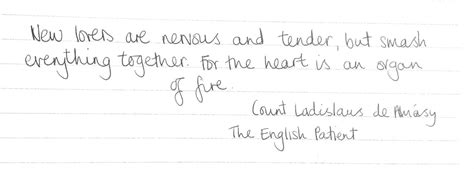 New lovers are nervous and tender, but smash
everything together. For the heart is an organ
of fire.
Count Ladislaus de Almásy
The English Patient